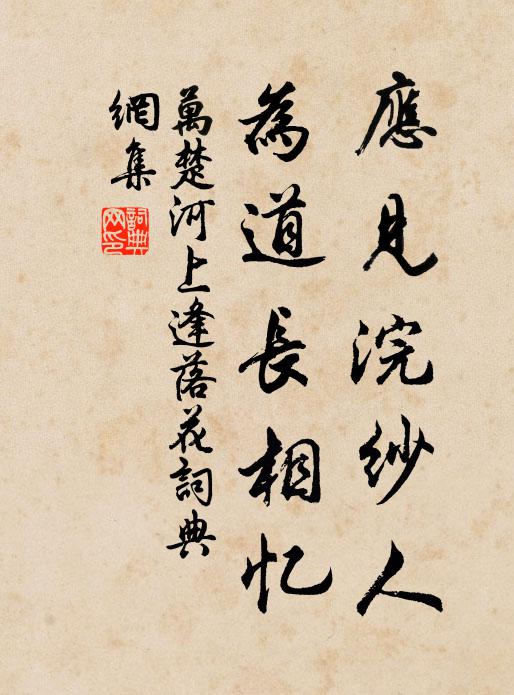 應見浣紗人
為道長相忆
萬楚河上逢落花詞典
網集
詞典
网印